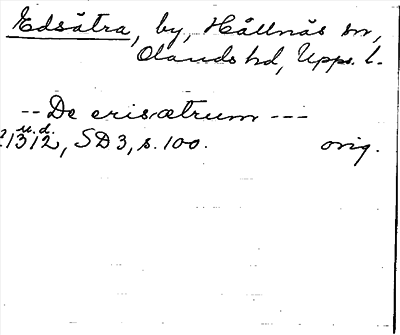 Edsätra, by, Hållnäs sn,
Olands hd, Upps. l.
-- De erisætrum ---
u.d.
1312, SD 3, s. 100. orig.